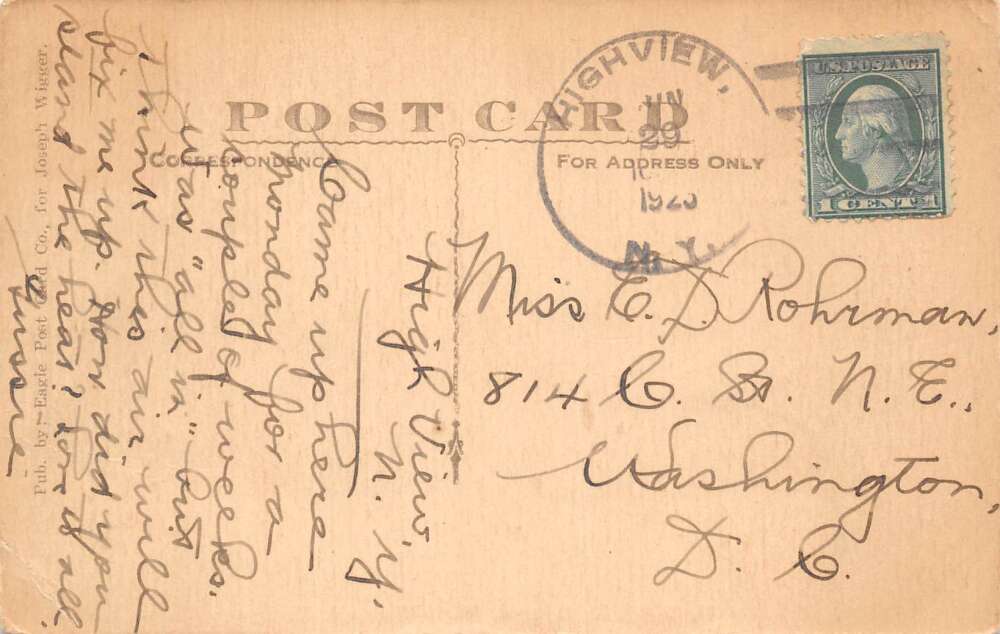 POST CARD
CORRESPONDENCE
FOR ADDRESS ONLY
HIGHVIEW,
JUN
29
1923
N.Y.
U.S. POSTAGE
1 CENT 1
High View,
N. Y.
Came up here
Monday for a
couple of weeks.
Was "all in" but
think this air will
fix me up. How did you
stand the heat? Love to all.
Miss C. D. Rohrman,
814 C. St. N. E.,
Washington,
D. C.
Pub. by Eagle Post Card Co., for Joseph Wigger.